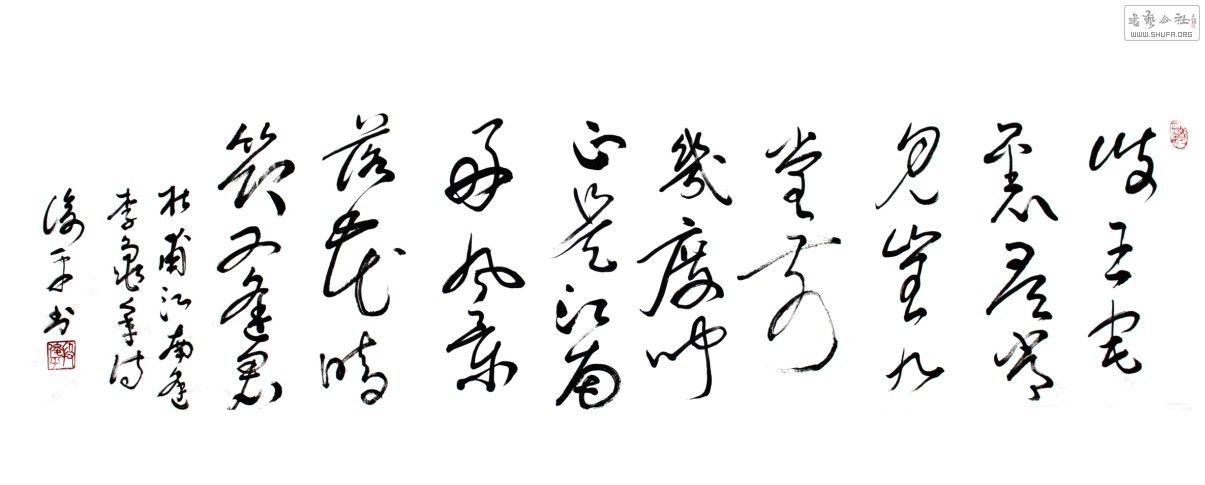 書艺公社
WWW.SHUFA.ORG
岐王宅
裏尋常
見崔九
堂前
幾度聞
正是江南
好風景
落花時
節又逢君
杜甫江南逢
李龜年詩
平书